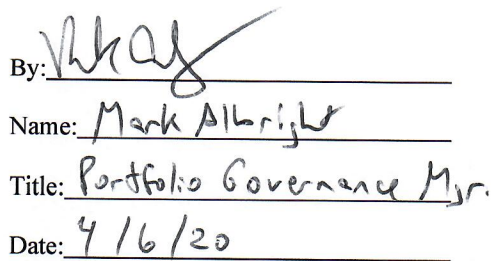 By:
Name: Mark Albright
Title: Portfolio Governance Mgr.
Date: 4/6/20